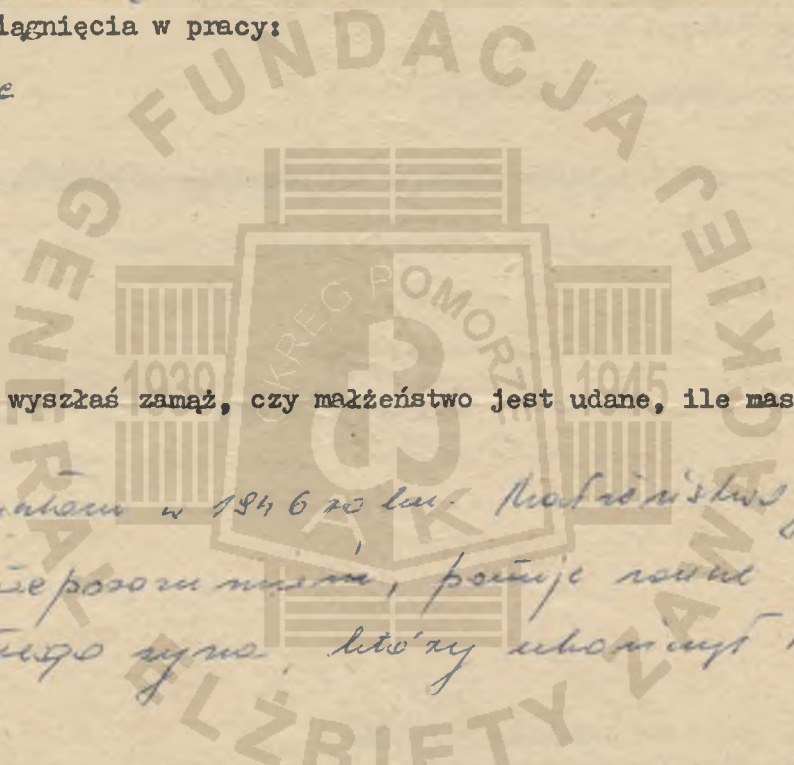 iągnięcia w pracy:
wyszłaś zamąż, czy małżeństwo jest udane, ile mas
w 1946 roku. Małżeństwo
, panuje
syna, który ukończył
FUNDACJA GENERAŁ ELŻBIETY ZAWACKIEJ
OKRĘG POMORZE
1939 1945
AK